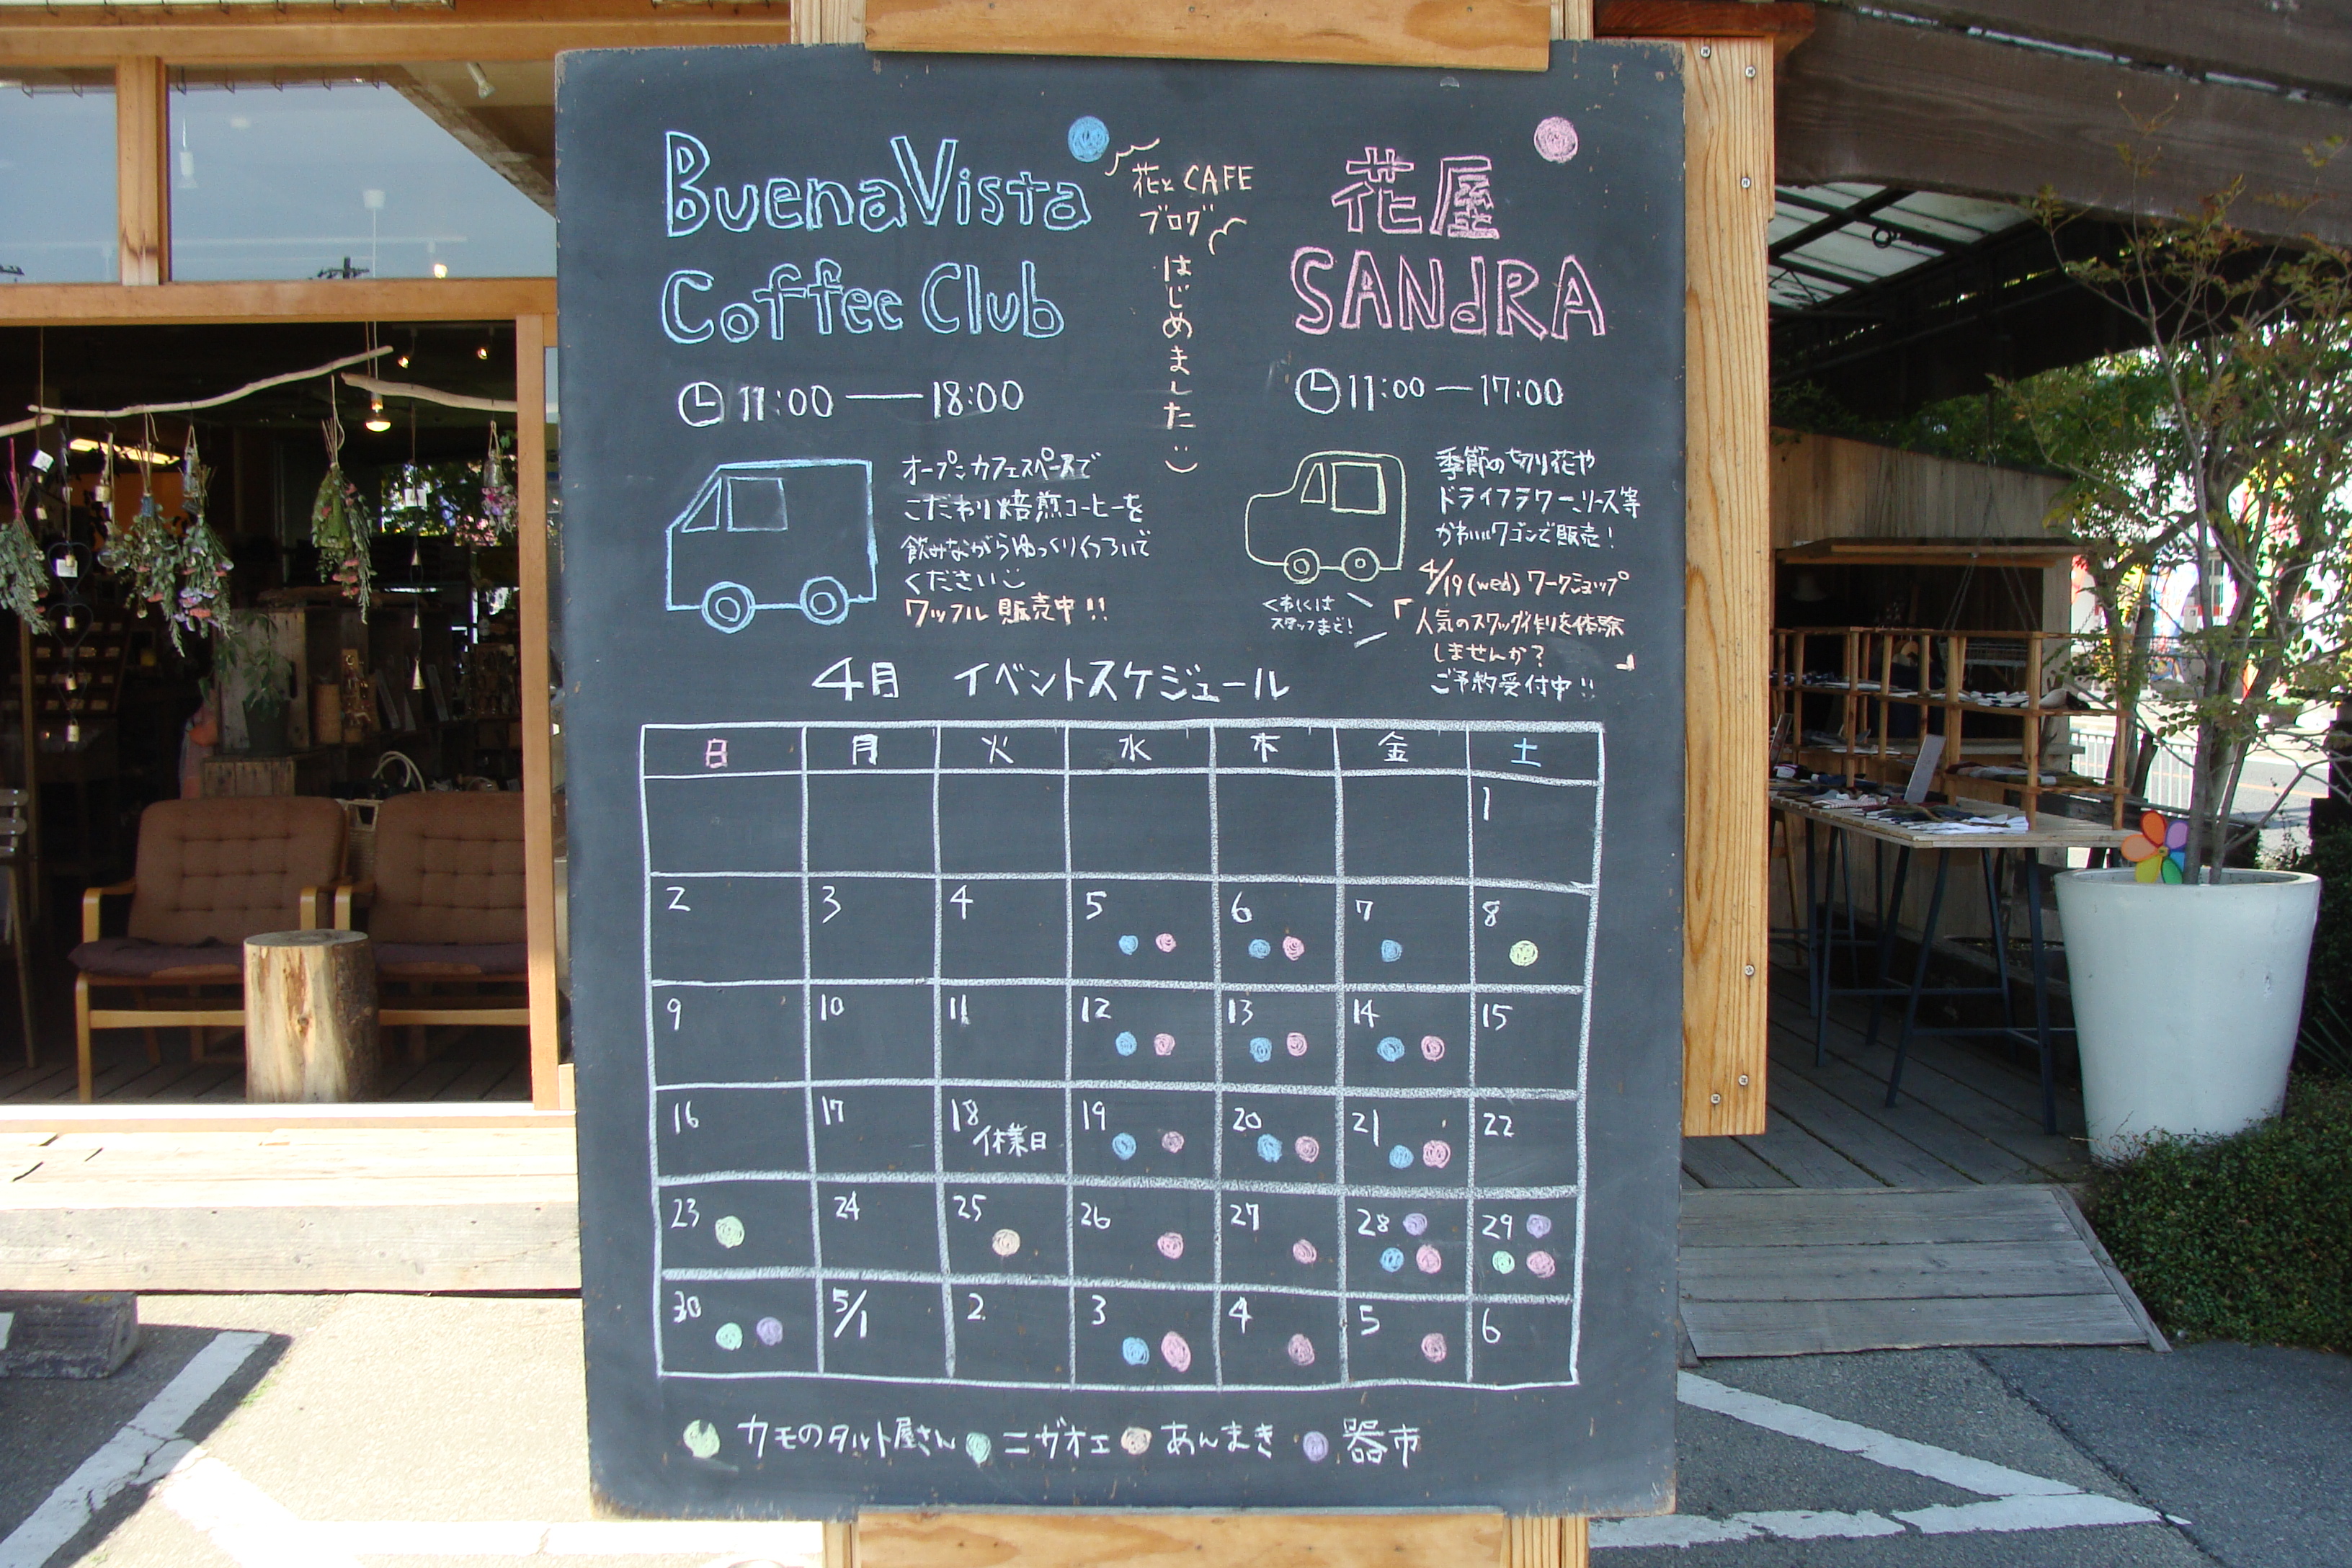 BuenaVista
Coffee Club
花とCAFE
ブログ
はじめました
花屋
SANdRA
11:00 — 18:00
11:00 — 17:00
オープンカフェスペースで
こだわり焙煎コーヒーを
飲みながらゆっくりくつろいで
ください
ワッフル販売中!!
季節の切り花や
ドライフラワーリース等
かわいいワゴンで販売!
4/19(wed) ワークショップ
「人気のスワッグ作りを体験
しませんか?」
ご予約受付中!!
くわしくは
スタッフまで!
4月 イベントスケジュール
日 月 火 水 木 金 土
1
2 3 4 5 6 7 8
9 10 11 12 13 14 15
16 17 18 19 20 21 22
休業日
23 24 25 26 27 28 29
30 5/1 2 3 4 5 6
カモのタルト屋さん ニガオエ あんまき 器市